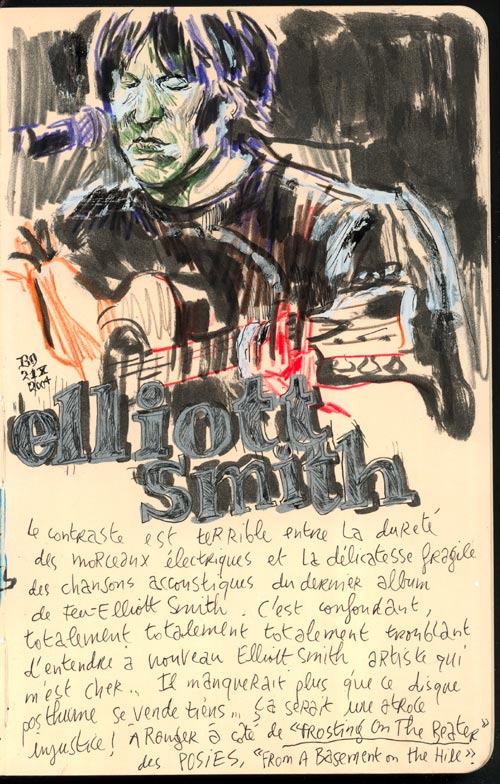 BD
21 X
2004
elliott
Smith
Le contraste est terrible entre la dureté
des morceaux électriques et la délicatesse fragile
des chansons accoustiques du dernier album
de Feu-Elliott Smith. C'est confondant,
totalement totalement totalement troublant
d'entendre a nouveau Elliott Smith artiste qui
m'est cher... Il manquerait plus que ce disque
posthume se vende tiens... ça serait une atroce
injustice! A Ranger à côté de "Frosting On The Beater"
des POSIES, "From A Basement on the Hill".